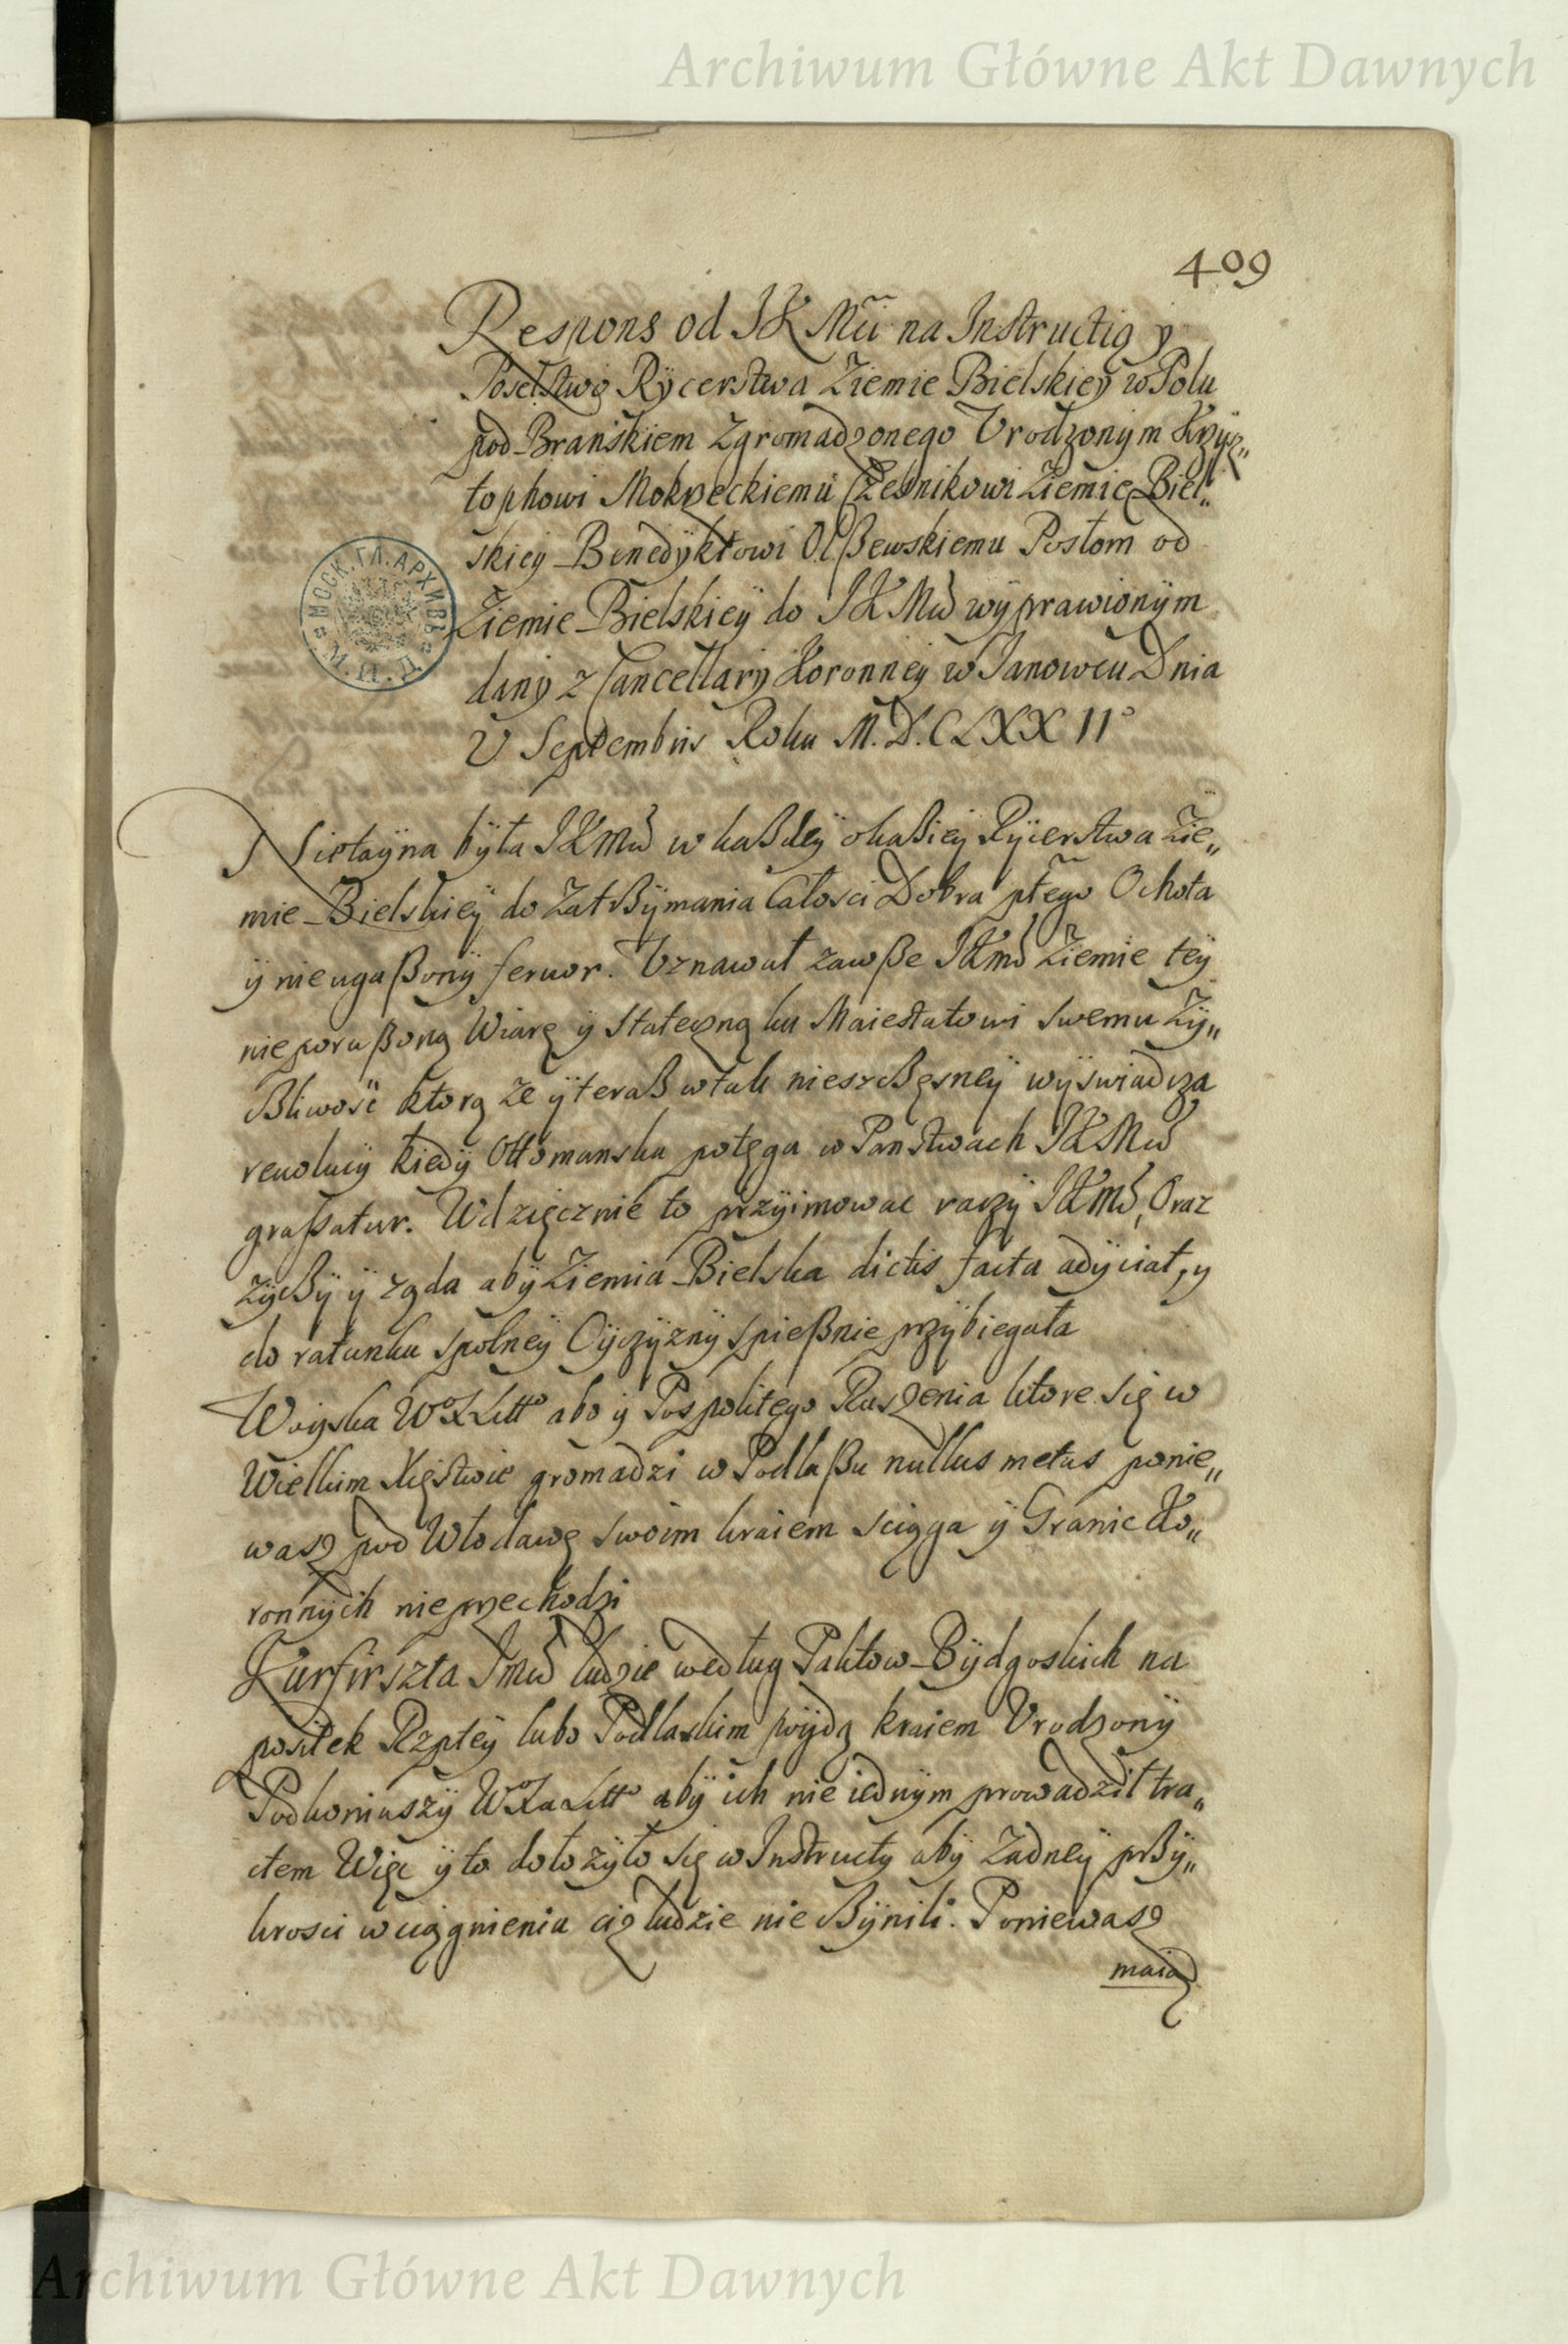 Archiwum Główne Akt Dawnych
409
Respons od JKMci na Instructią y
Poselstwo Rycerstwa Ziemie Bielskiey w Polu
pod Brańskiem zgromadzonego Vrodzonym Krzysz„
tophowi Mokrzeckiemu Czesnikowi Ziemie Biel„
skiey Benedyktowi Olßewskiemu Posłom od
Ziemie Bielskiey do JKMci wyprawionym
dany z Cancellaryi Koronney w Janowcu Dnia
V Septembris Roku M.D.CLXXII°
МОСК.ГЛ.АРХИВЪ М.И.Д.
Nietayna była JKMci w kaßdey okaßiey Rycerstwa Zie„
mie Bielskiey do Zatrßymania Całosci Dobra pltego Ochota
y nieugaßony feruor. Vznawał zawße JKMć Ziemie tey
nieporußoną Wiarę y Stateczną ku Maiestatowi swemu Zy„
ßliwość ktorą ze y teraß w tak nieszcßęsney wyswiadcza
reuolucy kiedy Ottomanska potęga w Panstwach JKMci
graßatur. Wdzięcznie to przyimowac raczy JKMć, Oraz
życßy y ząda aby Ziemia Bielska dictis facta adyciat, y
do ratunku spolney Oyczyzny spießnie przybiegała
Woyska WXLitto abo y Pospolitego Ruszenia ktore się w
Wielkim Xięstwie gromadzi w Podlaßu nullus metus ponie„
wasz pod Włodawę swoim kraiem sciąga y Granic Ko„
ronnych nieprzechodzi
Kurfirszta Jmci ludzie według Paktow Bydgoskich na
posiłek Rzptey lubo Podlaskim poydą kraiem Vrodzony
Podkoniuszy WXaLitto aby ich nie iednym prowadził tra„
ctem Więc y to dołozyło się w Instructy aby zadney prßy„
krosci w ciągnieniu ciz ludzie nie cßynili. Poniewasz
maią
Archiwum Główne Akt Dawnych